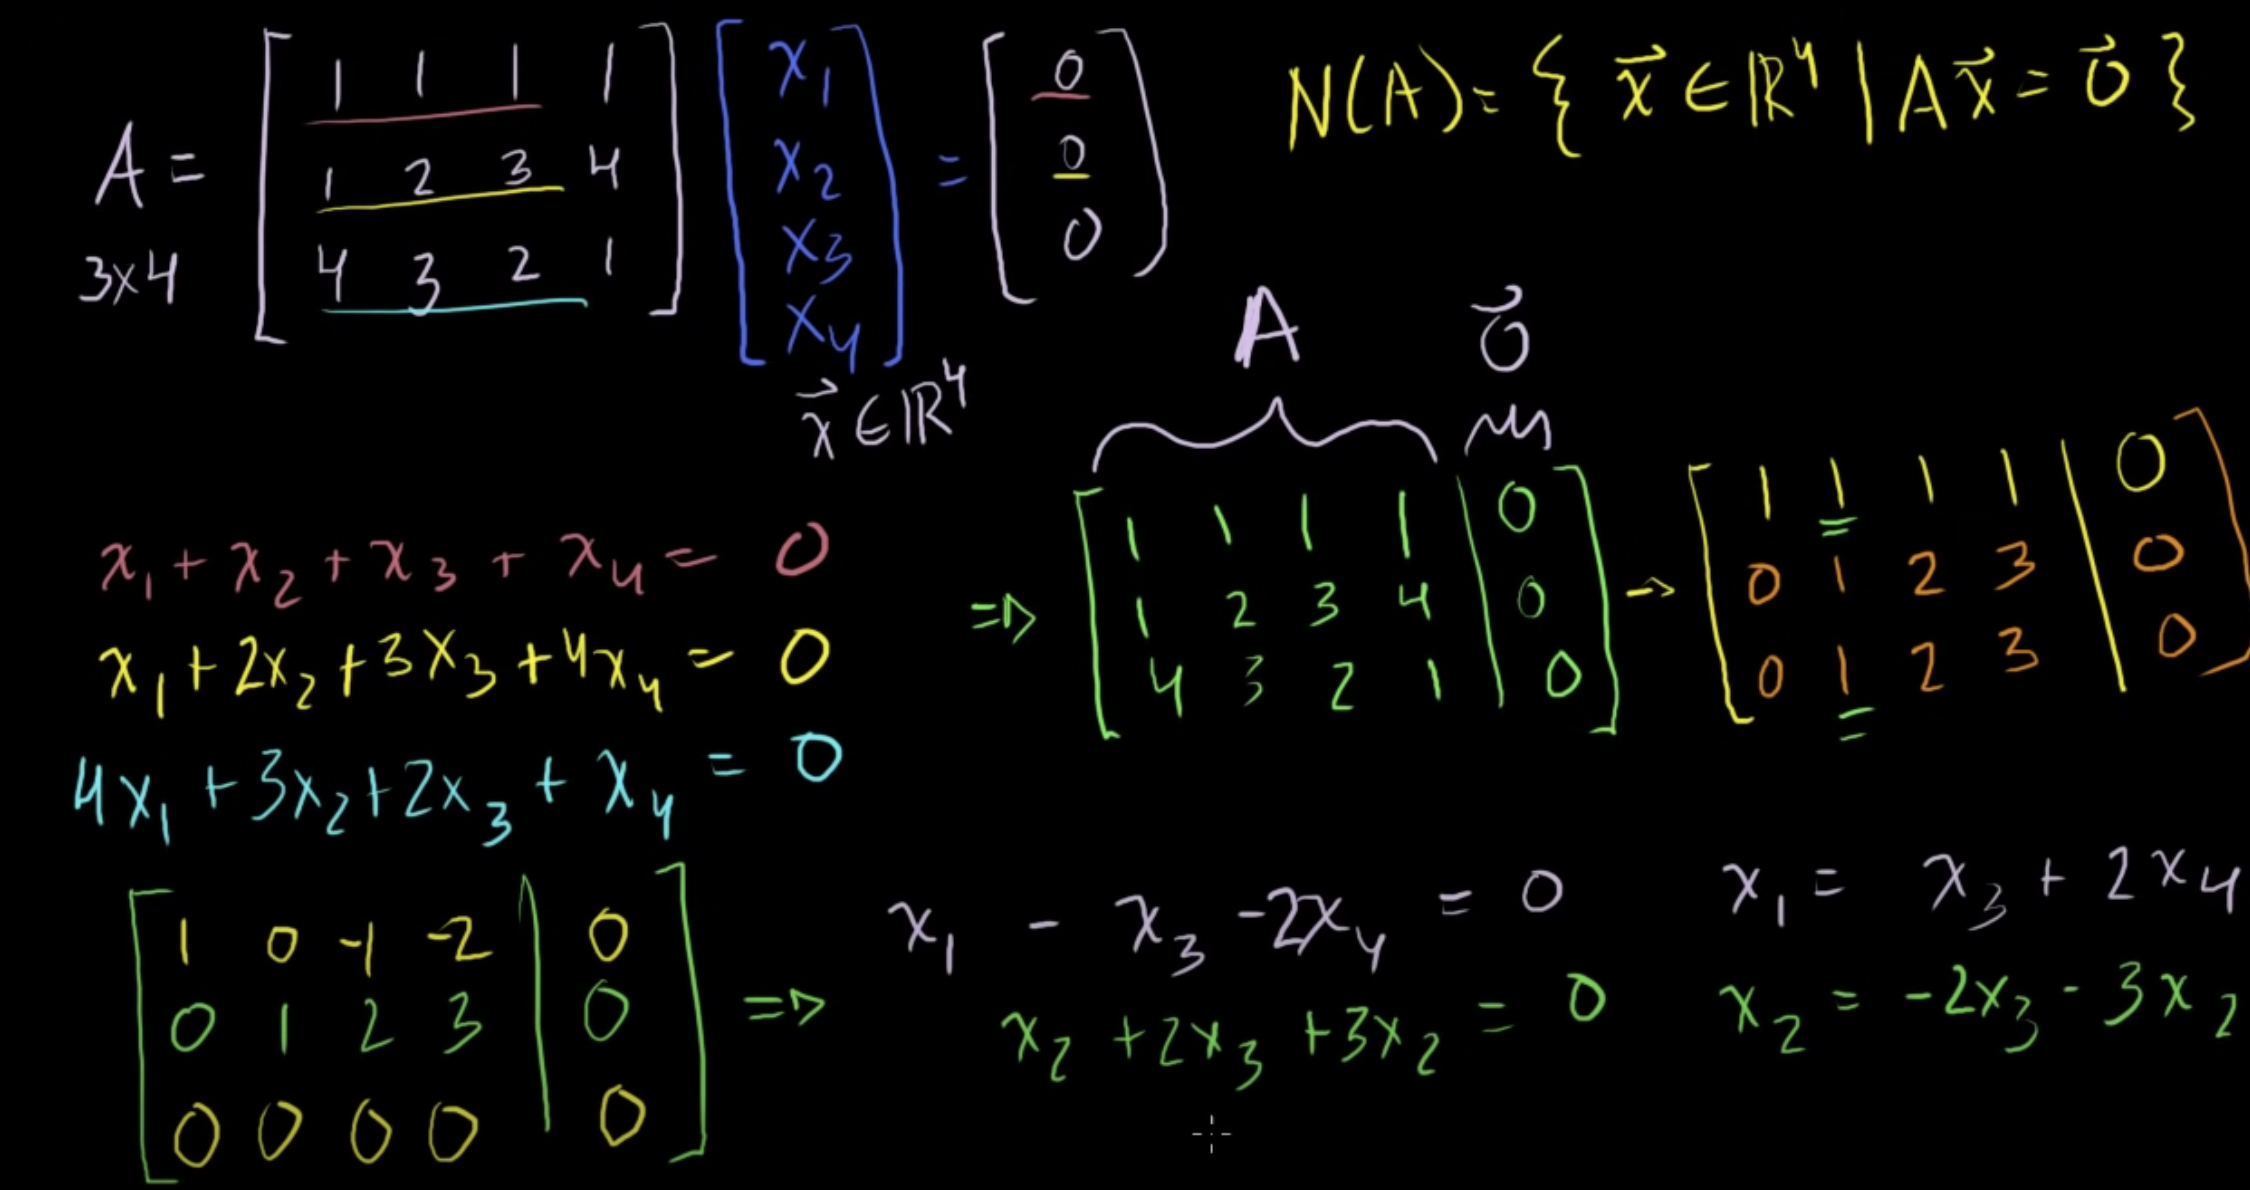 A = [ 1 1 1 1 ; 1 2 3 4 ; 4 3 2 1 ] [ x₁ ; x₂ ; x₃ ; x₄ ] = [ 0 ; 0 ; 0 ]
3x4
x⃗ ∈ ℝ⁴
N(A) = { x⃗ ∈ ℝ⁴ | Ax⃗ = 0⃗ }
x₁ + x₂ + x₃ + x₄ = 0
x₁ + 2x₂ + 3x₃ + 4x₄ = 0
4x₁ + 3x₂ + 2x₃ + x₄ = 0
A 0⃗
⇒ [ 1 1 1 1 | 0 ; 1 2 3 4 | 0 ; 4 3 2 1 | 0 ] → [ 1 1 1 1 | 0 ; 0 1 2 3 | 0 ; 0 1 2 3 | 0 ]
[ 1 0 -1 -2 | 0 ; 0 1 2 3 | 0 ; 0 0 0 0 | 0 ] ⇒
x₁ - x₃ - 2x₄ = 0
x₂ + 2x₃ + 3x₂ = 0
x₁ = x₃ + 2x₄
x₂ = -2x₃ - 3x₂